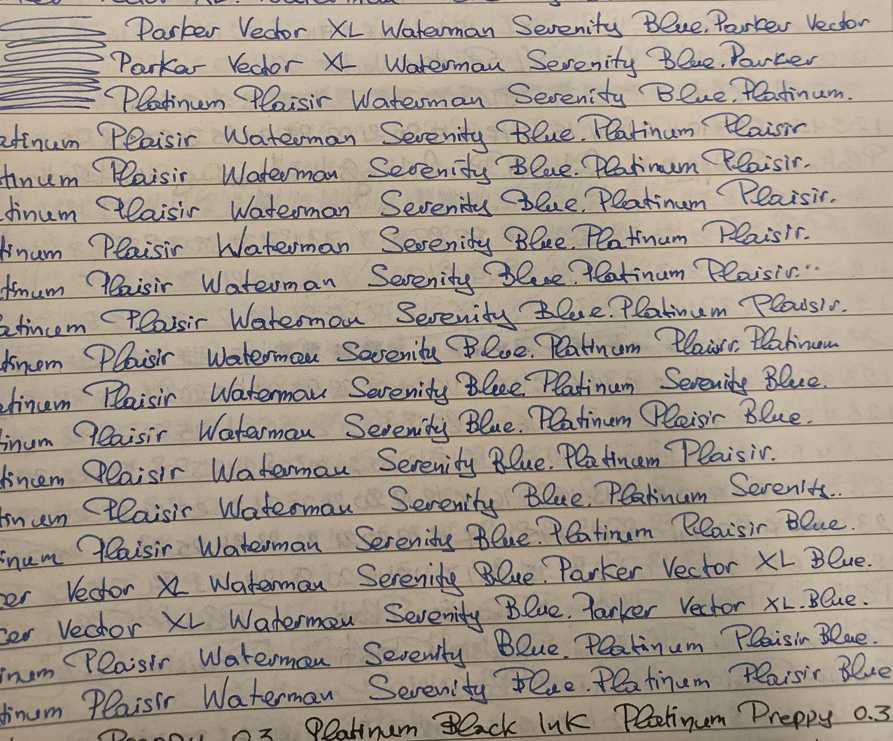 Parker Vector XL Waterman Serenity Blue. Parker Vector
Parker Vector XL Waterman Serenity Blue. Parker
Platinum Plaisir Waterman Serenity Blue. Platinum.
atinum Plaisir Waterman Serenity Blue. Platinum Plaisir
tinum Plaisir Waterman Serenity Blue. Platinum Plaisir.
tinum Plaisir Waterman Serenity Blue. Platinum Plaisir.
tinum Plaisir Waterman Serenity Blue. Platinum Plaisir.
tinum Plaisir Waterman Serenity Blue. Platinum Plaisir...
atinum Plaisir Waterman Serenity Blue. Platinum Plaisir.
tinum Plaisir Waterman Serenity Blue. Platinum Plaisir. Platinum
atinum Plaisir Waterman Serenity Blue. Platinum Serenity Blue.
inum Plaisir Waterman Serenity Blue. Platinum Plaisir Blue.
tinum Plaisir Waterman Serenity Blue. Platinum Plaisir.
tinum Plaisir Waterman Serenity Blue. Platinum Serenity..
inum Plaisir Waterman Serenity Blue. Platinum Plaisir Blue.
er Vector XL Waterman Serenity Blue. Parker Vector XL Blue.
ker Vector XL Waterman Serenity Blue. Parker Vector XL. Blue.
inum Plaisir Waterman Serenity Blue. Platinum Plaisir Blue.
tinum Plaisir Waterman Serenity Blue. Platinum Plaisir Blue
Preppy 0.3 Platinum Black Ink Platinum Preppy 0.3